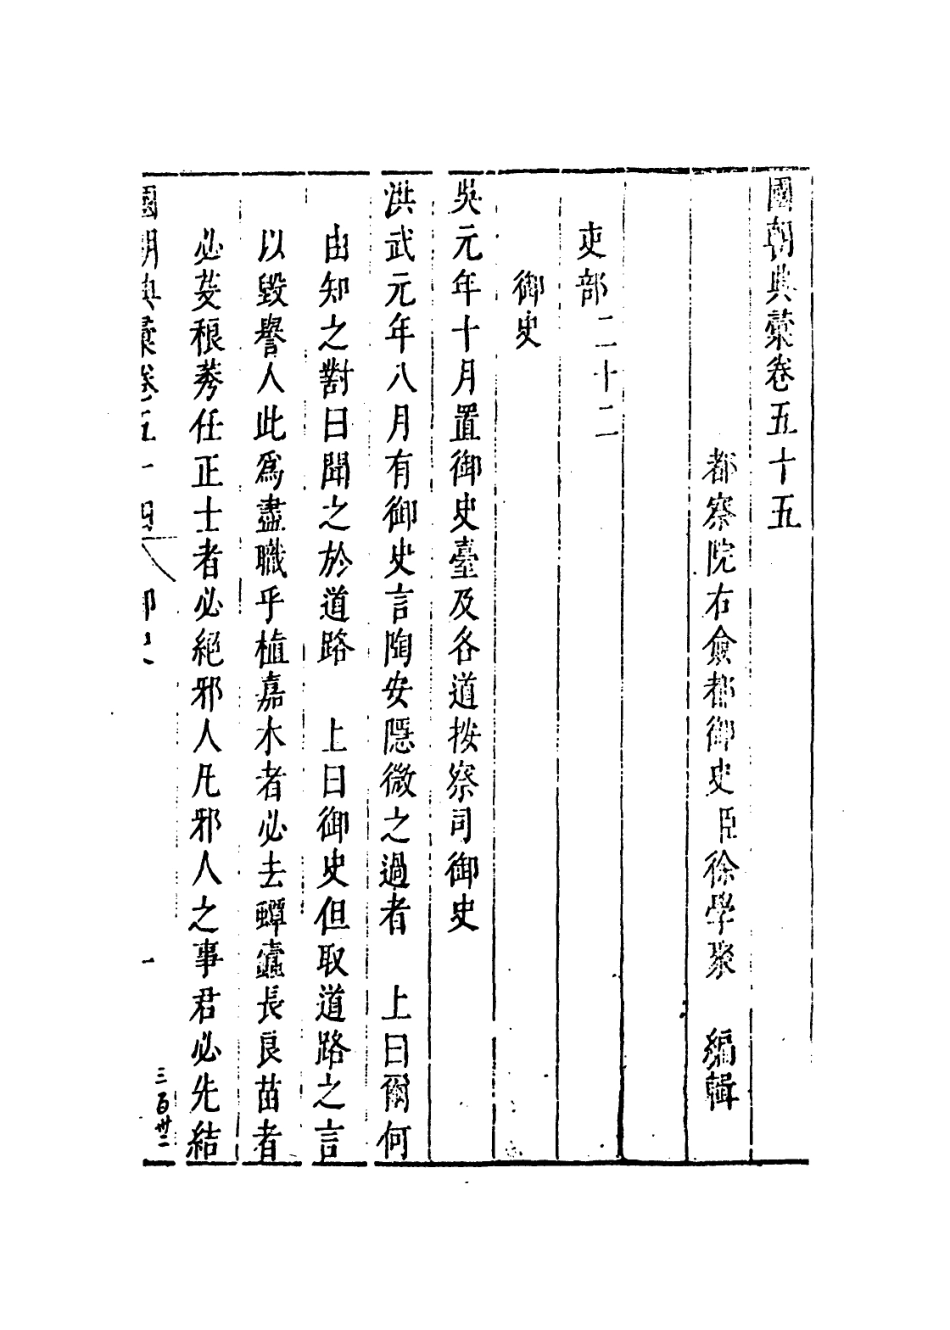 國朝典彙卷五十五
都察院右僉都御史臣徐學聚 編輯
吏部二十二
御史
吳元年十月置御史臺及各道按察司御史
洪武元年八月有御史言陶安隱微之過者 上曰爾何
由知之對曰聞之於道路 上曰御史但取道路之言
以毀譽人此爲盡職乎植嘉木者必去蟫蠹長良苗者
必芟稂莠任正士者必絕邪人凡邪人之事君必先結
國朝典彙卷五十四 御史 一
三百卅二